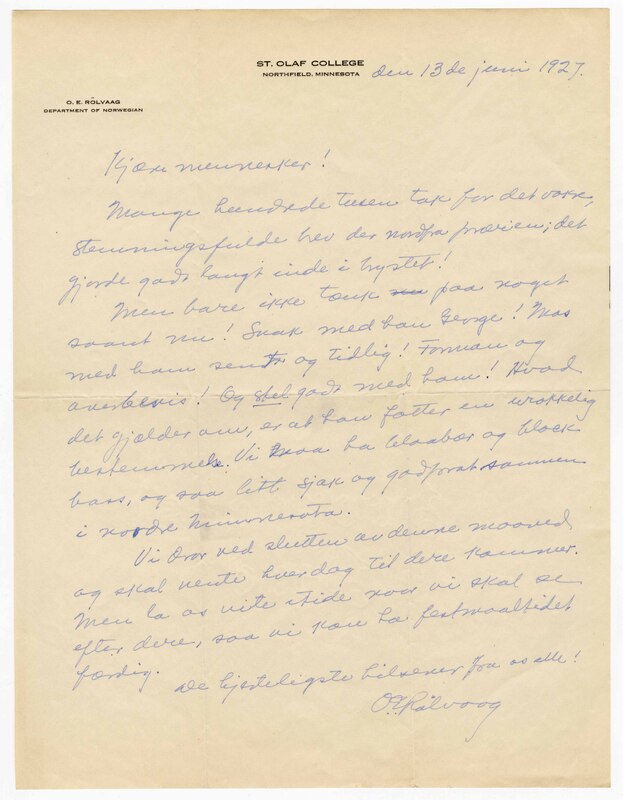 ST. OLAF COLLEGE
NORTHFIELD, MINNESOTA
den 13de juni 1927.
O. E. RÖLVAAG
DEPARTMENT OF NORWEGIAN
Kjære mennesker!
Mange hundrede tusen tak for det vakre,
stemningsfulde brev der nordfra prærien; det
gjorde godt langt inde i brystet!
Men bare ikke tænk paa noget
saant nu! Snak med han George! Mas
med ham sent og tidlig! Forman og
overbevis! Og stel godt med ham! Hvad
det gjælder om, er at han fatter en urokkelig
bestemmelse. Vi maa ha blaabær og black
bass, og saa litt sjak og godprat sammen
i nordre Minnesota.
Vi drar ved slutten av denne maaned
og skal vente hver dag til dere kommer.
Men la os vite itide naar vi skal se
efter dere, saa vi kan ha festmaaltidet
færdig.
De hjerteligste hilsener fra os alle!
O.E. Rölvaag